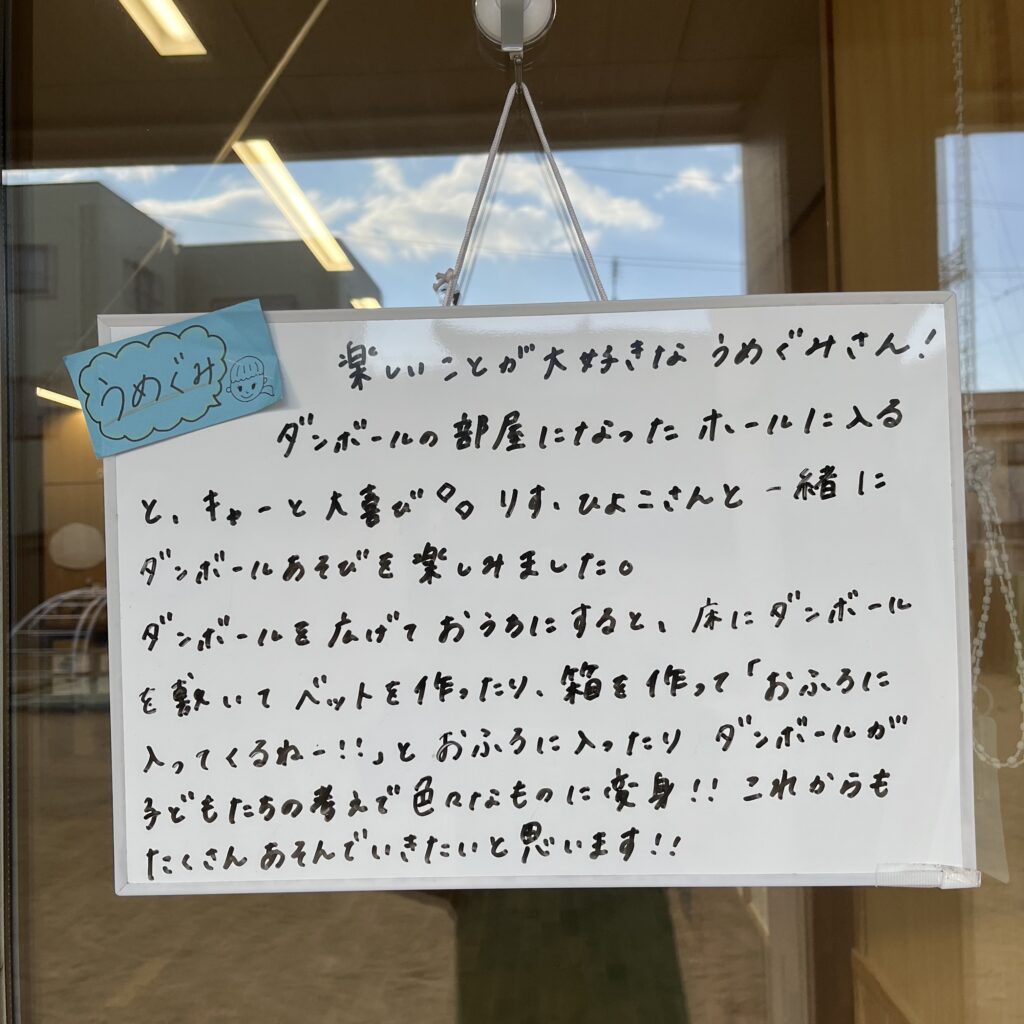 うめぐみ
楽しいことが大好きな うめぐみさん!
ダンボールの部屋になった ホールに入る
と、キャーと大喜び りす、ひよこさんと一緒に
ダンボールあそびを楽しみました。
ダンボールを広げて おうちにすると、床にダンボール
を敷いて ベットを作ったり、箱を作って「おふろに
入ってくるねー!!」と おふろに入ったり ダンボールが
子どもたちの考えで色々なものに変身!! これからも
たくさんあそんでいきたいと思います!!